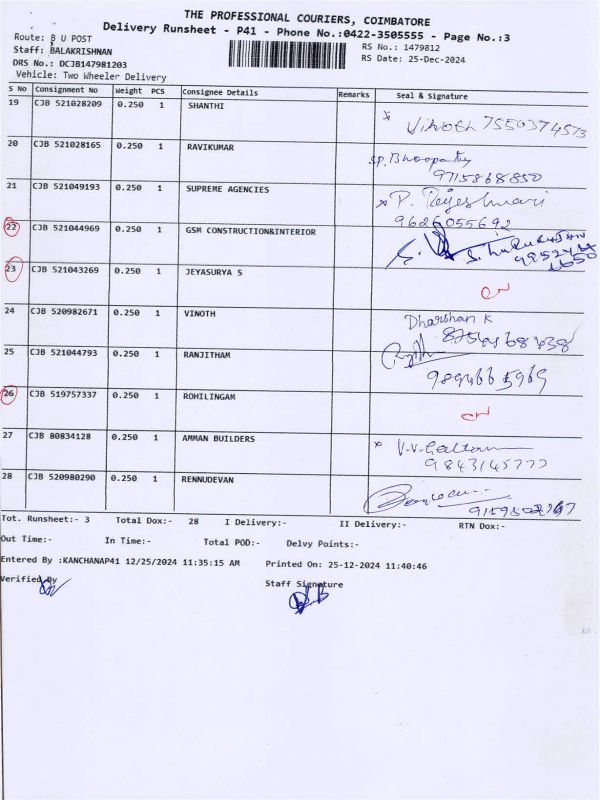 THE PROFESSIONAL COURIERS, COIMBATORE
Delivery Runsheet - P41 - Phone No.:0422-3505555 - Page No.:3
Route: B U POST
RS No.: 1479812
Staff: BALAKRISHNAN
RS Date: 25-Dec-2024
DRS No.: DCJB147981203
Vehicle: Two Wheeler Delivery
S No Consignment No Weight PCS Consignee Details Remarks Seal & Signature
19 CJB 521028209 0.250 1 SHANTHI
Vinoth 7550374573
20 CJB 521028165 0.250 1 RAVIKUMAR
SP. Bhoopathy
9715868850
21 CJB 521049193 0.250 1 SUPREME AGENCIES
P. Rajeshwari
9626055692
22 CJB 521044969 0.250 1 GSM CONSTRUCTION&INTERIOR
23 CJB 521043269 0.250 1 JEYASURYA S
24 CJB 520982671 0.250 1 VINOTH
Dharshan K
25 CJB 521044793 0.250 1 RANJITHAM
26 CJB 519757337 0.250 1 ROHILINGAM
27 CJB 80834128 0.250 1 AMMAN BUILDERS
9843145777
28 CJB 520980290 0.250 1 RENNUDEVAN
Tot. Runsheet:- 3 Total Dox:- 28 I Delivery:- II Delivery:- RTN Dox:-
Out Time:- In Time:- Total POD:- Delvy Points:-
Entered By :KANCHANAP41 12/25/2024 11:35:15 AM Printed On: 25-12-2024 11:40:46
Verified By Staff Signature